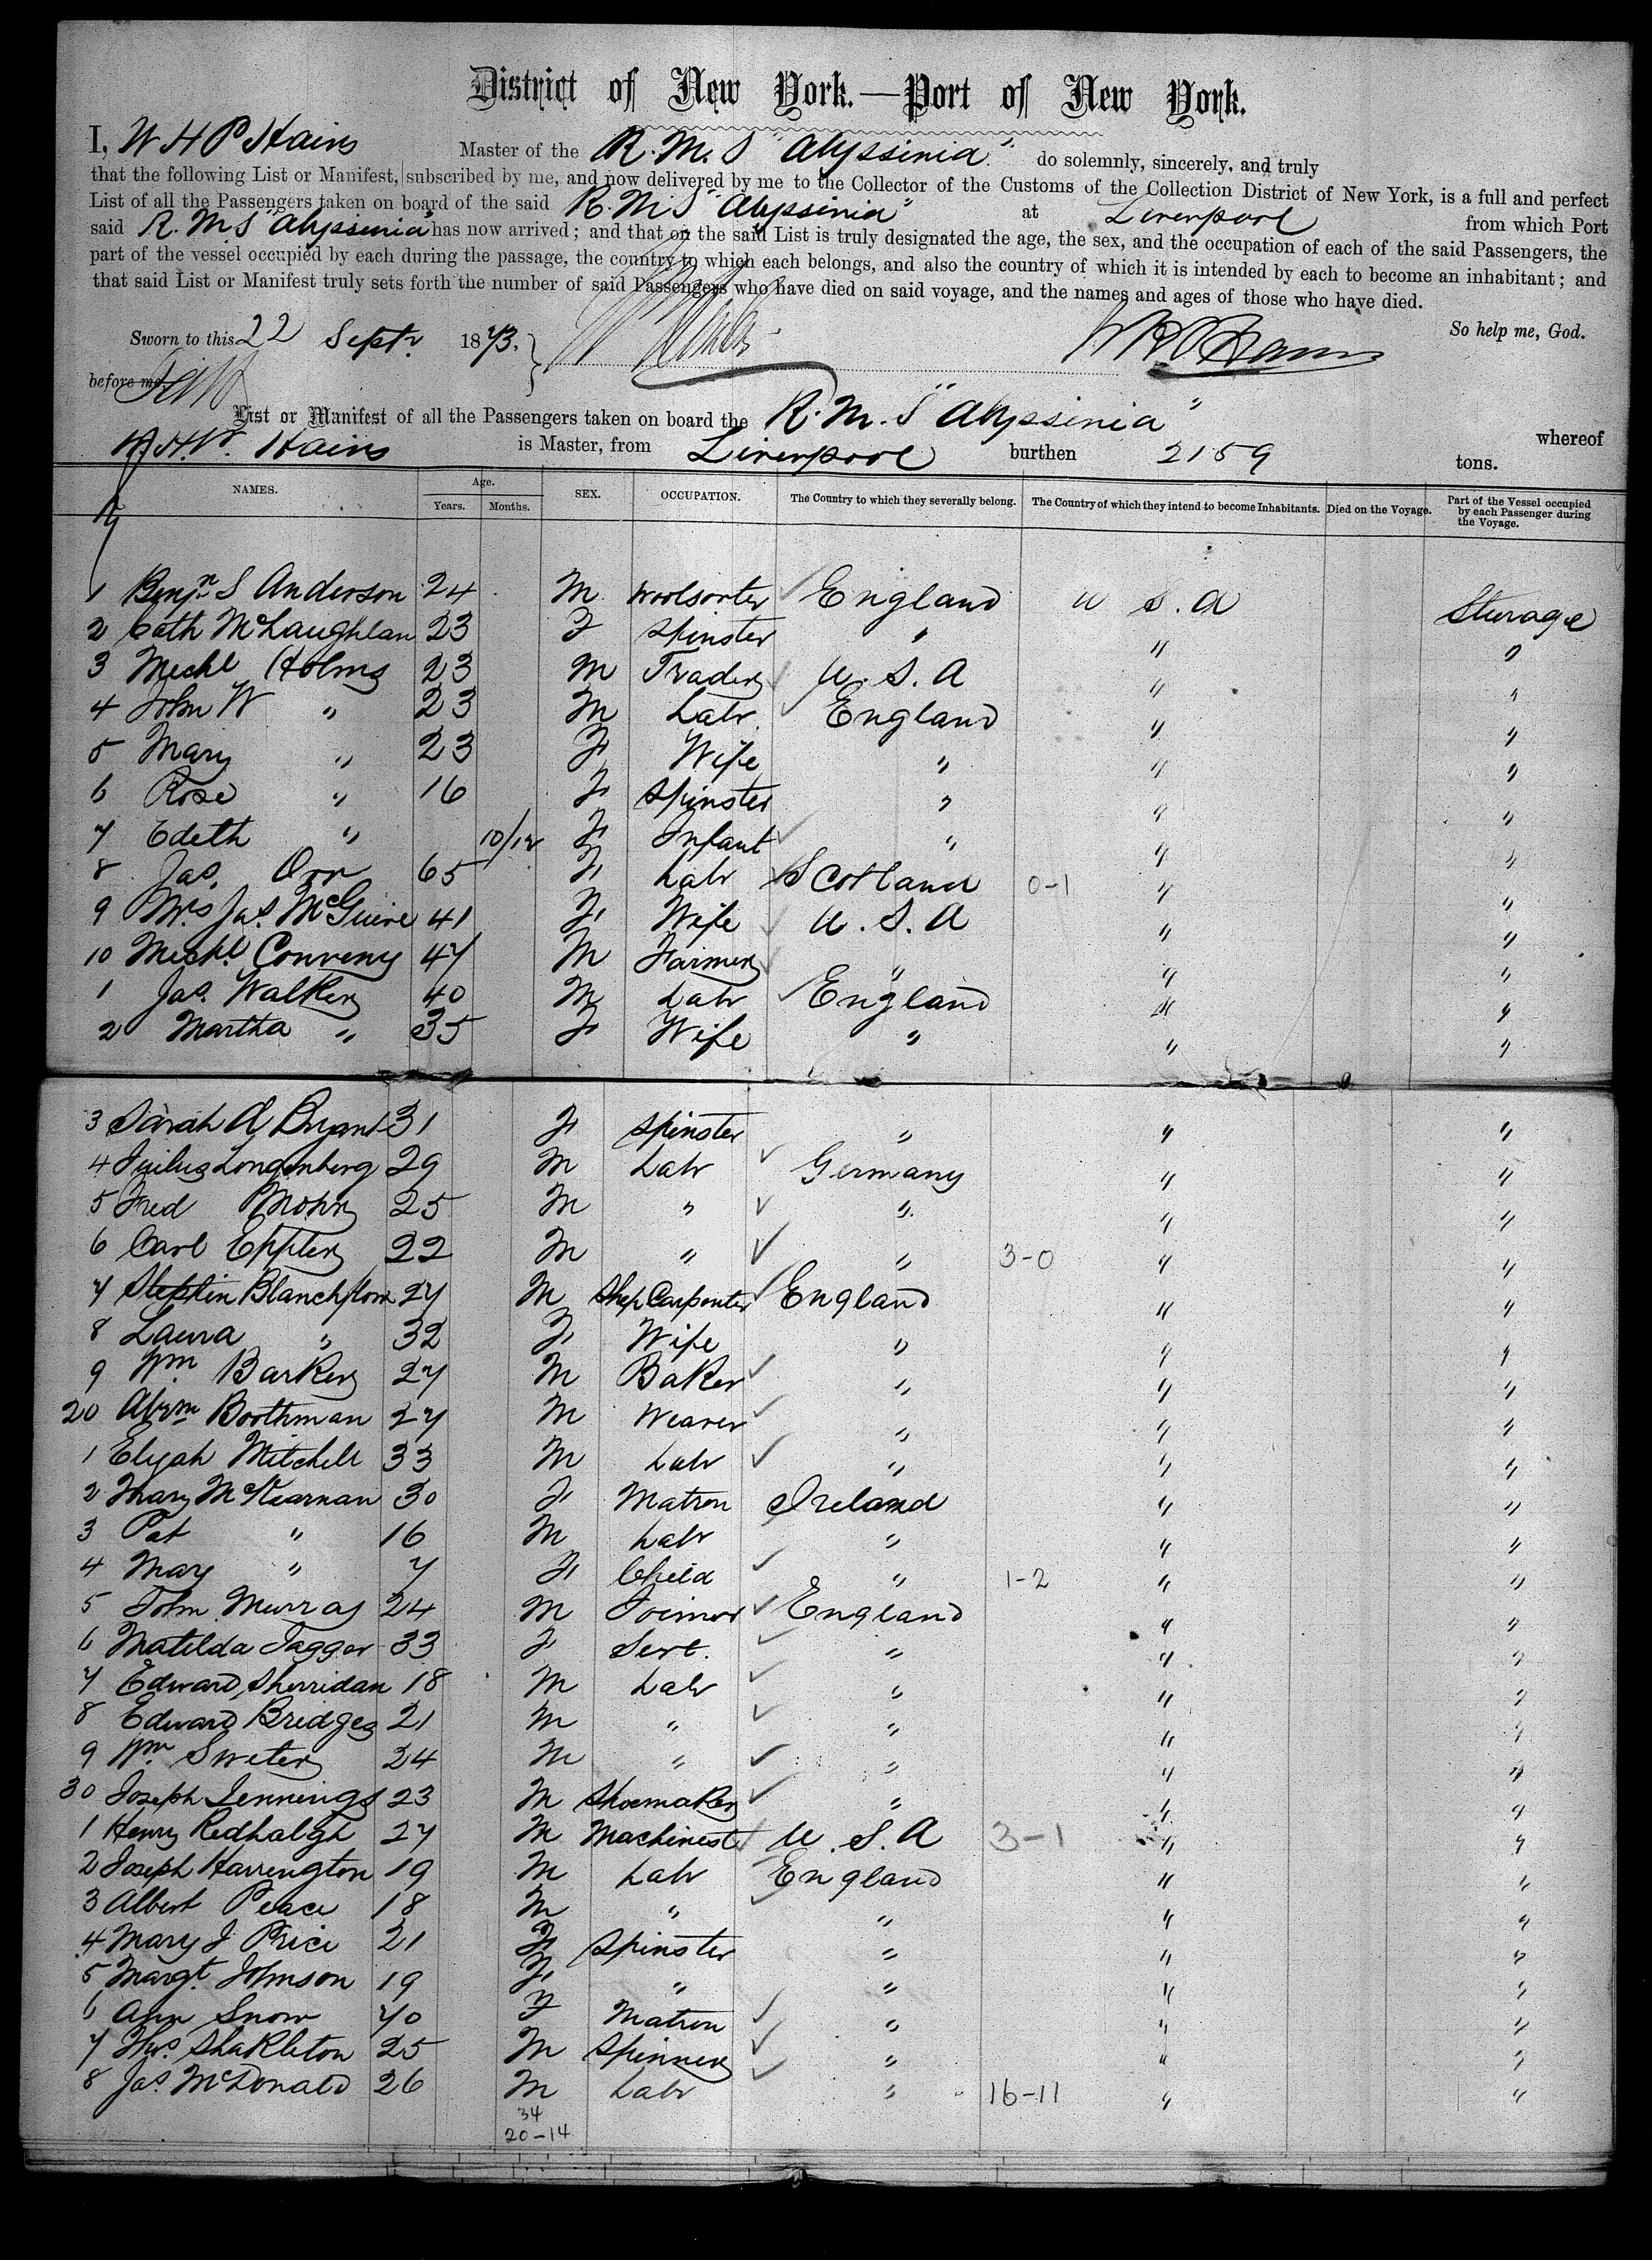 District of New York.—Port of New York.
I, W H P Hains Master of the R. M. S "Abyssinia" do solemnly, sincerely, and truly
that the following List or Manifest, subscribed by me, and now delivered by me to the Collector of the Customs of the Collection District of New York, is a full and perfect
List of all the Passengers taken on board of the said R. M. S "Abyssinia" at Liverpool from which Port
said R. M. S "Abyssinia" has now arrived; and that on the said List is truly designated the age, the sex, and the occupation of each of the said Passengers, the
part of the vessel occupied by each during the passage, the country to which each belongs, and also the country of which it is intended by each to become an inhabitant; and
that said List or Manifest truly sets forth the number of said Passengers who have died on said voyage, and the names and ages of those who have died.
So help me, God.
Sworn to this 22 Septr 1873.
before me,
List or Manifest of all the Passengers taken on board the R. M. S "Abyssinia" whereof
Hains is Master, from Liverpool burthen 2159 tons.
NAMES. Age. Years. Months. SEX. OCCUPATION. The Country to which they severally belong. The Country of which they intend to become Inhabitants. Died on the Voyage. Part of the Vessel occupied by each Passenger during the Voyage.
1 Benjn S Anderson 24 M Woolsorter England U S. A Sterage
2 Cath McLaughlan 23 F Spinster " " "
3 Michl Holms 23 M Trader U. S. A " "
4 John W " 23 M Labr England " "
5 Mary " 23 F Wife " " "
6 Rose " 16 F Spinster " " "
7 Edeth " 10/12 F Infant " " "
8 Jas. Orr 65 F Labr Scotland 0-1 " "
9 Mrs Jas. McGuire 41 F Wife U. S. A " "
10 Michl Conveny 47 M Farmer " " "
1 Jas. Walker 40 M Labr England " "
2 Martha " 35 F Wife " " "
3 Sarah A Bryant 31 F Spinster " " "
4 Juilus Longenberg 29 M Labr Germany " "
5 Fred Mohr 25 M " " " "
6 Carl Eppler 22 M " " 3-0 " "
7 Stephen Blanchflow 27 M Ship Carpenter England " "
8 Laura " 32 F Wife " " "
9 Wm Barker 27 M Baker " " "
20 Abrm Boothman 27 M Weaver " " "
1 Elijah Mitchell 33 M Labr " " "
2 Mary McKearnan 30 F Matron Ireland " "
3 Pat " 16 M Labr " " "
4 Mary " 7 F Child " 1-2 " "
5 John Murray 24 M Joiner England " "
6 Matilda Jagger 33 F Servt. " " "
7 Edward Sherridan 18 M Labr " " "
8 Edward Bridges 21 M " " " "
9 Wm Sweter 24 M " " " "
30 Joseph Jennings 23 M Shoemaker " " "
1 Henry Redhalgh 27 M Machinest U. S. A 3-1 " "
2 Joseph Harrington 19 M Labr England " "
3 Albert Peace 18 M " " " "
4 Mary J Price 21 F Spinster " " "
5 Margt. Johnson 19 F " " " "
6 Ann Snow 40 F Matron " " "
7 Thos. Shakleton 25 M Spinner " " "
8 Jas. McDonald 26 M Labr " 16-11 " "
34
20-14